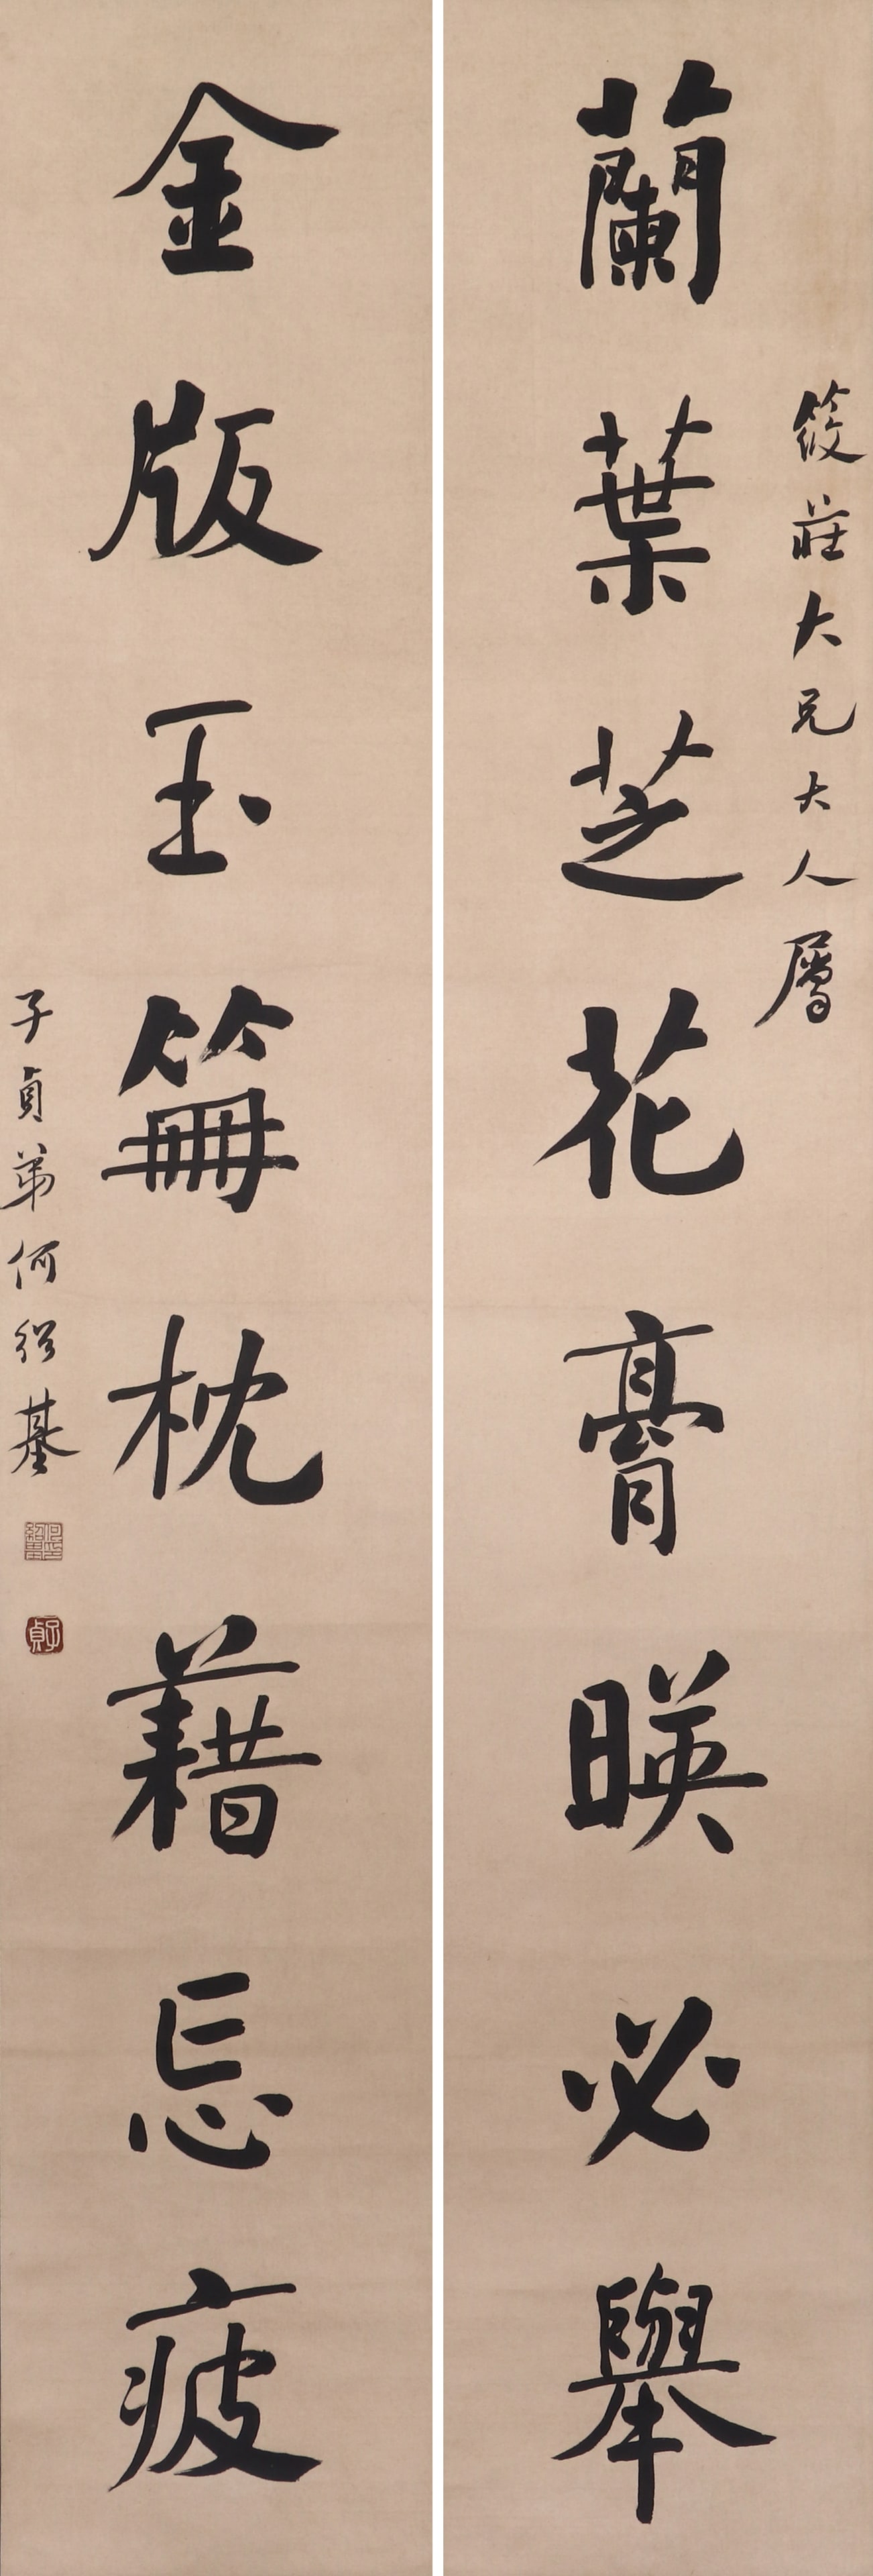 筱莊大兄大人屬
蘭葉芝花膏暎必舉
金版玉篇枕藉忘疲
子貞弟何紹基
何紹基印
子貞